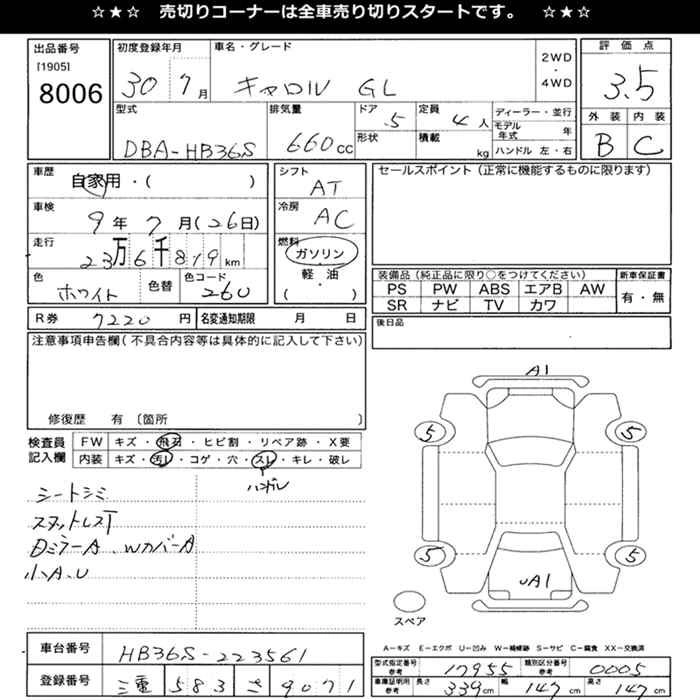 ☆★☆ 売切りコーナーは全車売り切りスタートです。 ☆★☆
出品番号
[1905]
8006
初度登録年月
30年7月
車名・グレード
キャロル GL
2WD
・
4WD
評価点
3.5
外装 内装
B C
型式
DBA-HB36S
排気量
660cc
ドア 5
形状
定員 4人
積載 kg
ディーラー・並行
モデル年式 年
ハンドル 左・右
車歴
自家用・( )
車検
9年7月(26日)
走行
23万6千819km
色
ホワイト
色替
色コード
260
シフト
AT
冷房
AC
燃料
ガソリン
・
軽・油
( )
セールスポイント (正常に機能するものに限ります)
装備品(純正品に限り○をつけてください)
PS PW ABS エアB AW
SR ナビ TV カワ
新車保証書
有・無
R券 7220円
名変通知期限 月 日
後日品
注意事項申告欄(不具合内容等は具体的に記入して下さい)
修復歴 有〔箇所 〕
検査員
記入欄
FW キズ・飛石・ヒビ割・リペア跡・X要
内装 キズ・汚レ・コゲ・穴・スレ・キレ・破レ
ハンドル
シートシミ
スタットレスT
Dミラーム A、WカバーA
小A、U
A1
5 5
5 5
UA1
スペア
A−キズ E−エクボ U−凹み W−補修跡 S−サビ C−腐食 XX−交換済
車台番号 HB36S-223561
登録番号 三重 583 さ 9071
型式指定番号
参考
17955
類別区分番号
参考
0005
車庫証明用
参考
長さ 339cm 幅 147cm 高さ 147cm